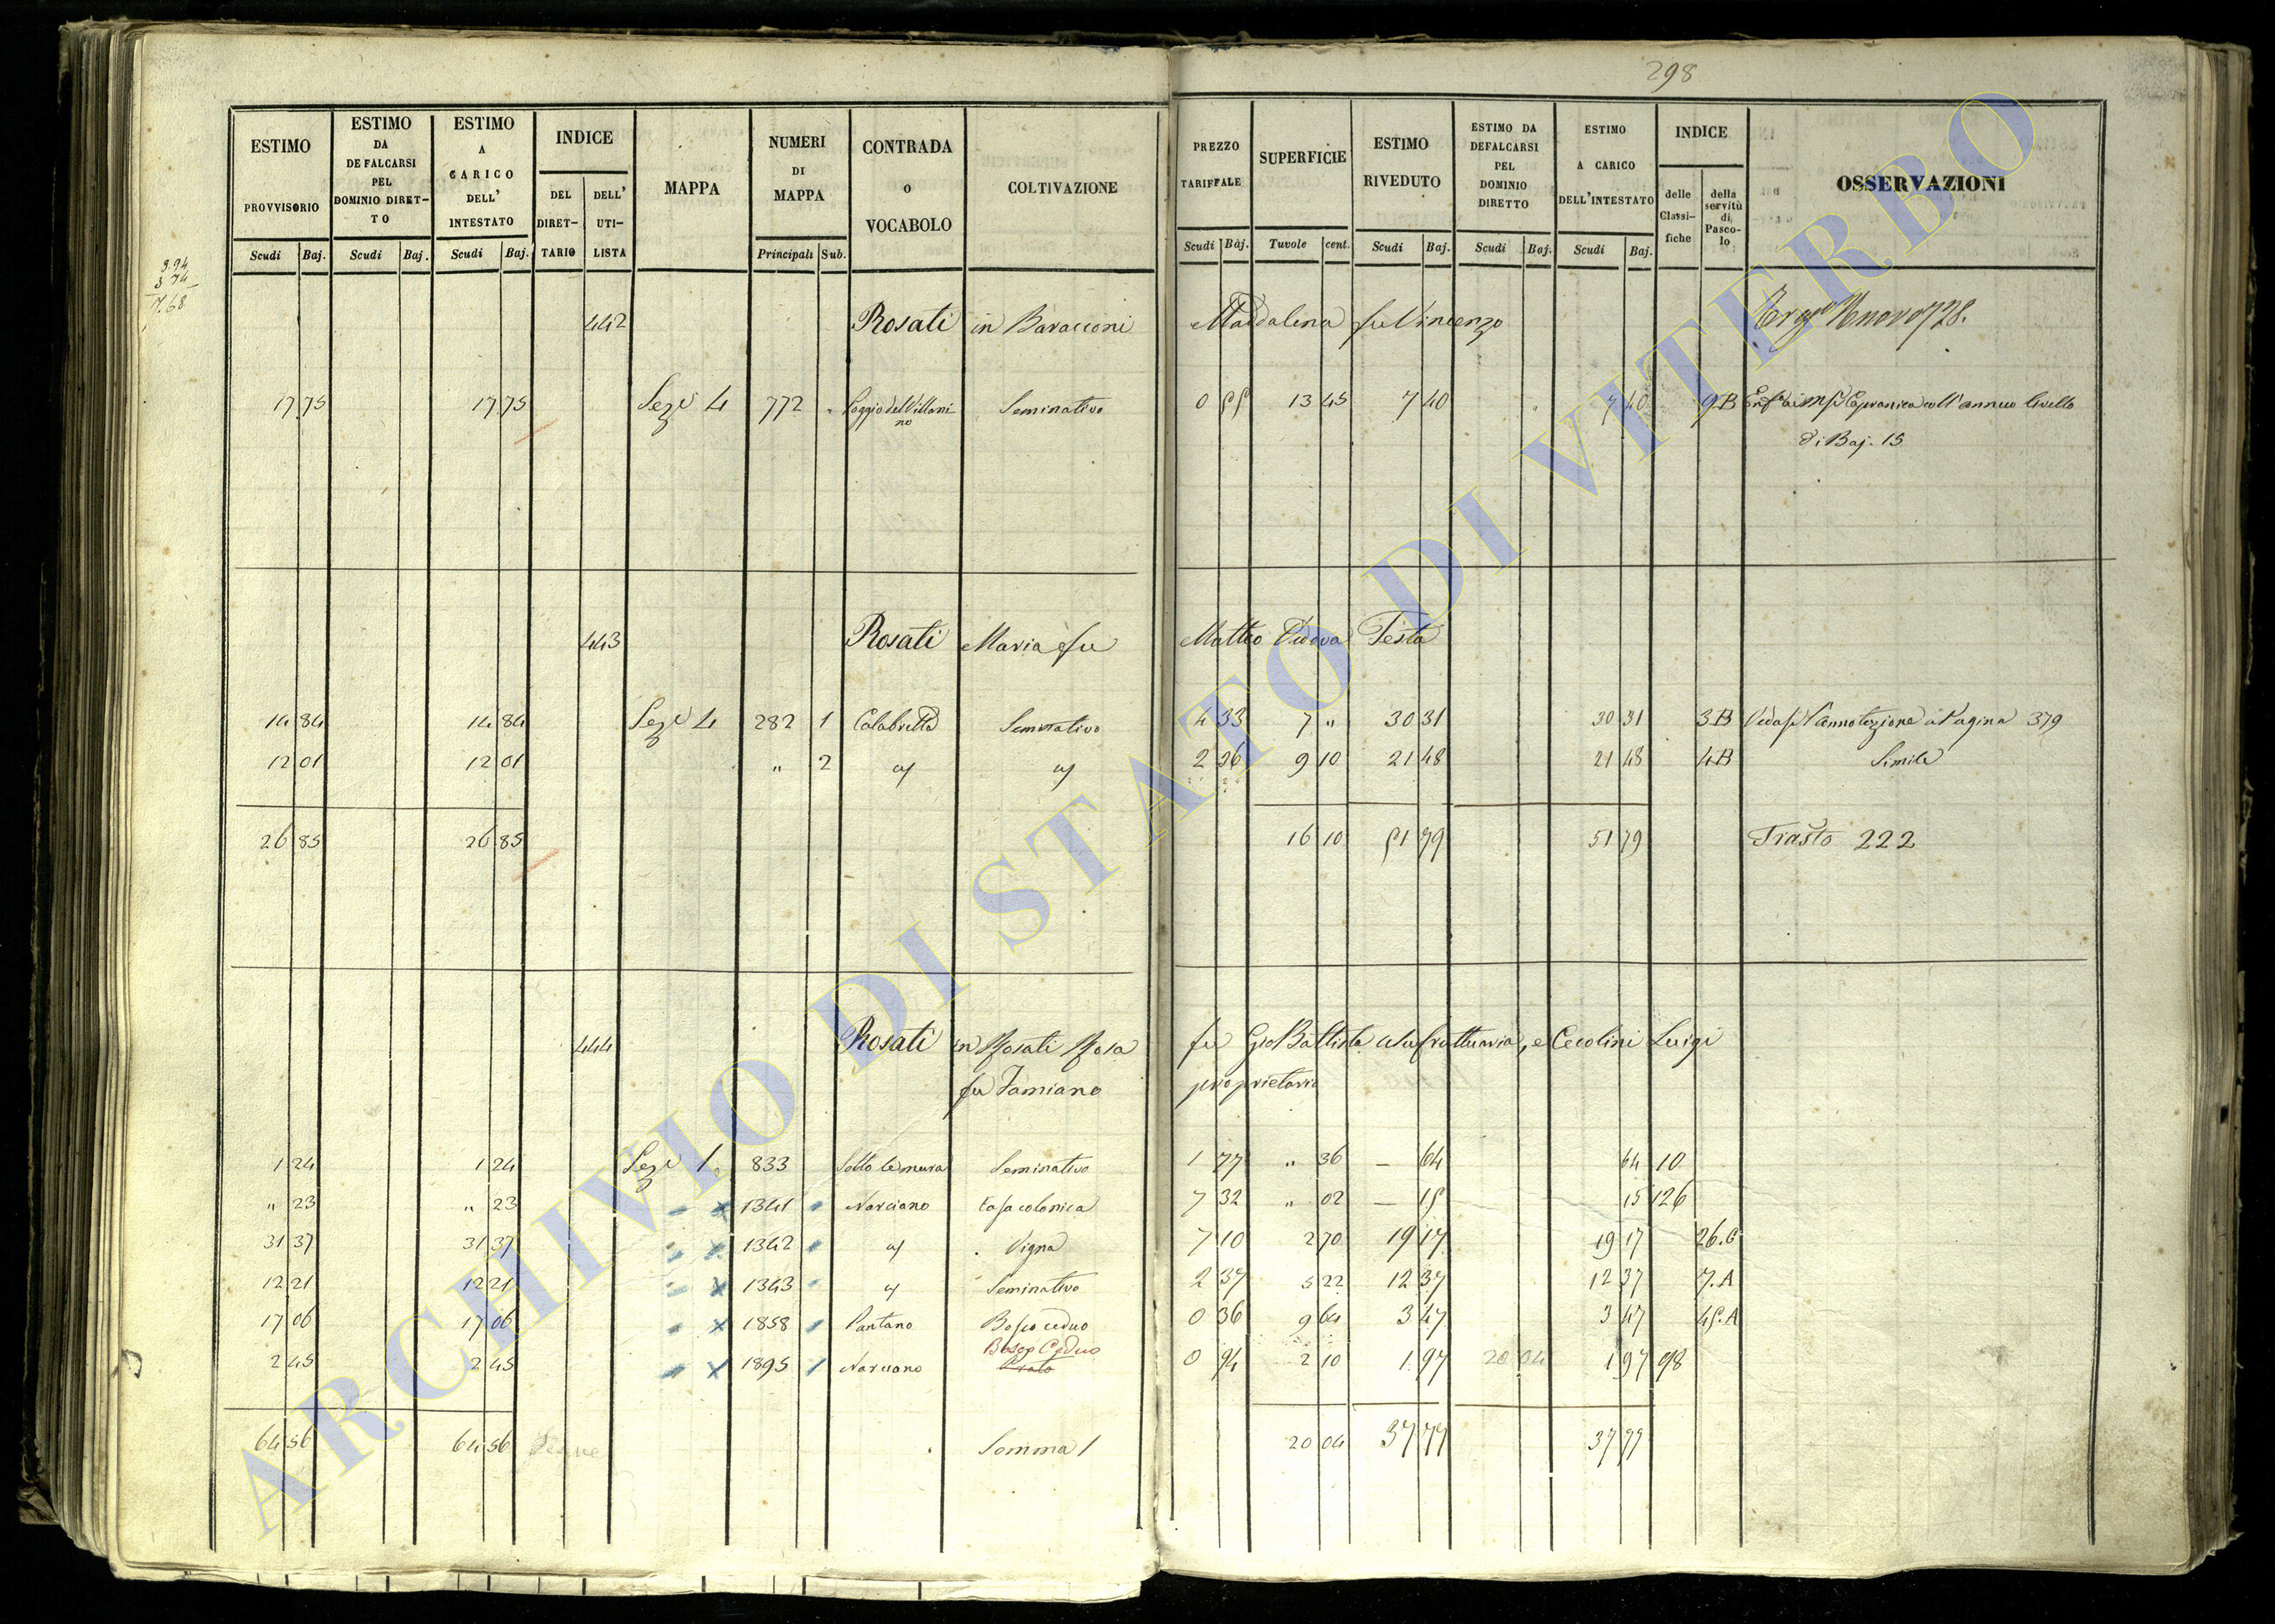 298
ESTIMO PROVVISORIO Scudi Baj.
ESTIMO DA DEFALCARSI PEL DOMINIO DIRETTO Scudi Baj.
ESTIMO A CARICO DELL' INTESTATO Scudi Baj.
INDICE DEL DIRETTARIO DELL' UTILISTA
MAPPA
NUMERI DI MAPPA Principali Sub.
CONTRADA O VOCABOLO
COLTIVAZIONE
PREZZO TARIFFALE Scudi Baj.
SUPERFICIE Tavole cent.
ESTIMO RIVEDUTO Scudi Baj.
ESTIMO DA DEFALCARSI PEL DOMINIO DIRETTO Scudi Baj.
ESTIMO A CARICO DELL'INTESTATO Scudi Baj.
INDICE delle Classifiche della servitù di Pascolo
OSSERVAZIONI
3.94
3 74
7.68
442 Rosati in Baracconi Maddalena fu Vincenzo
17 75 17 75 Sez. 4 772 Poggio del Villano Seminativo 0 55 13 45 7 40 7 40 9.B Capranica coll'annuo livello
di Baj. 15
443 Rosati Maria fu Matteo Vedova Testa
14 84 14 84 Sez. 4 282 1 Calabretta Seminativo 4 33 7 " 30 31 30 31 3.B Vedasi l'annotazione a Pagina 379
12 01 12 01 " 2 2 36 9 10 21 48 21 48 4.B Simile
26 85 26 85 16 10 51 79 51 79 Trasto 222
444 Rosati in Rosati Rosa fu Gio Battista usufruttuaria, e Cecolini Luigi
fu Famiano proprietario
1 24 1 24 Sez. 1. 833 Sotto le mura Seminativo 1 77 " 36 — 64 64 10
" 23 " 23 " x 1341 Narciano Casa colonica 7 32 " 02 — 15 15 126
31 37 31 37 " x 1342 Vigna 7 10 2 70 19 17 19 17 26.C
12 21 12 21 " x 1343 Seminativo 2 37 5 22 12 37 12 37 7.A
17 06 17 06 " x 1858 Pantano Bosco ceduo 0 36 9 64 3 47 3 47 45.A
Bosco Ceduo
2 45 2 45 " x 1895 Narciano Prato 0 94 2 10 1 97 20 04 1 97 98
64 56 64 56 Somma 1 20 04 37 77 37 77
ARCHIVIO DI STATO DI VITERBO